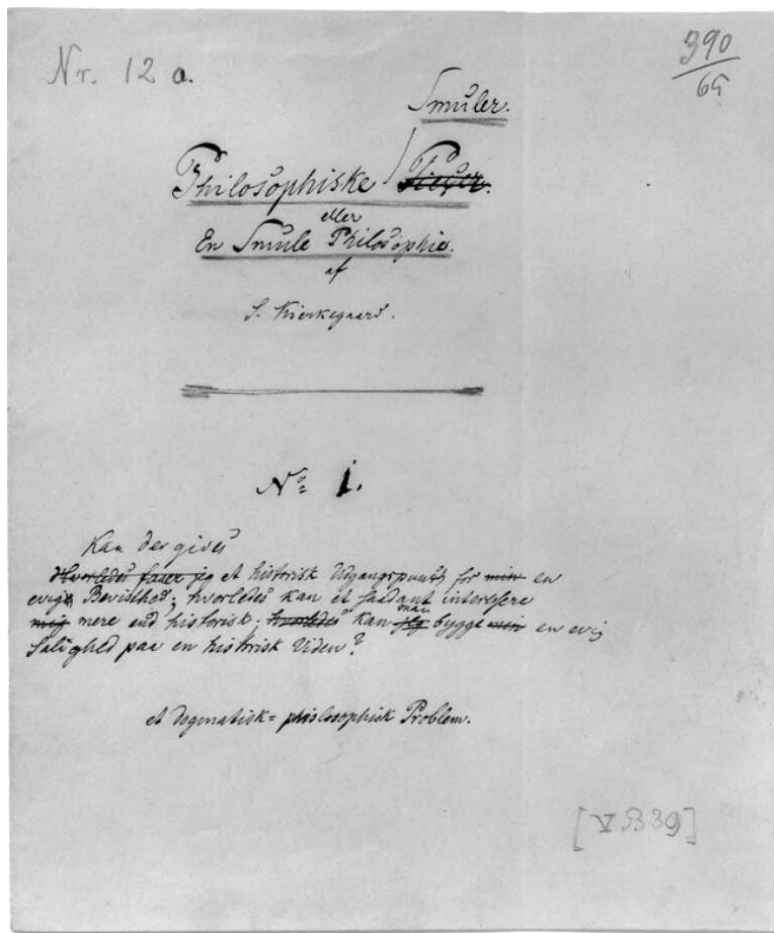 Nr. 12 a.
390
65
Smuler.
Philosophiske Piecer.
eller
En Smule Philosophie.
af
S. Kierkegaard.
No 1.
Kan der gives
Hvorledes faaer jeg et historisk Udgangspunkt for min en
evig Bevidsthed; hvorledes kan et saadant interessere
mig mere end historisk; hvorledes kan jeg man bygge min en evig
Salighed paa en historisk Viden?
et dogmatisk= philosophisk Problem.
[V B 39]